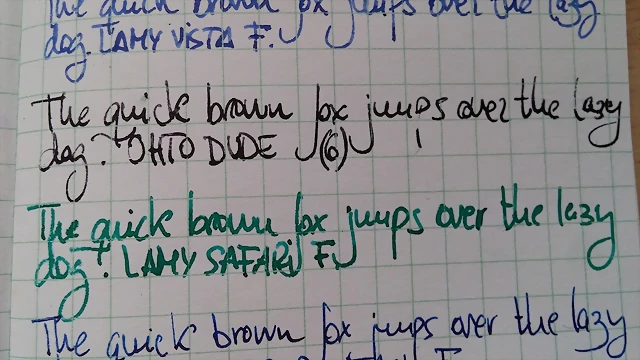 The quick brown fox jumps over the lazy
dog. LAMY VISTA F.
The quick brown fox jumps over the lazy
dog. OHTO DUDE (6)
The quick brown fox jumps over the lazy
dog. LAMY SAFARI F.
The quick brown fox jumps over the lazy